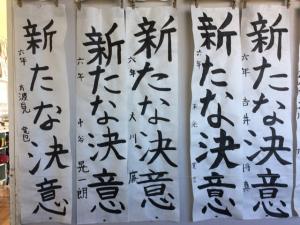 新たな決意
六年 吉井
新たな決意
六年
新たな決意
六年 大川
新たな決意
六年 中谷 晃一朗
新たな決意
六年